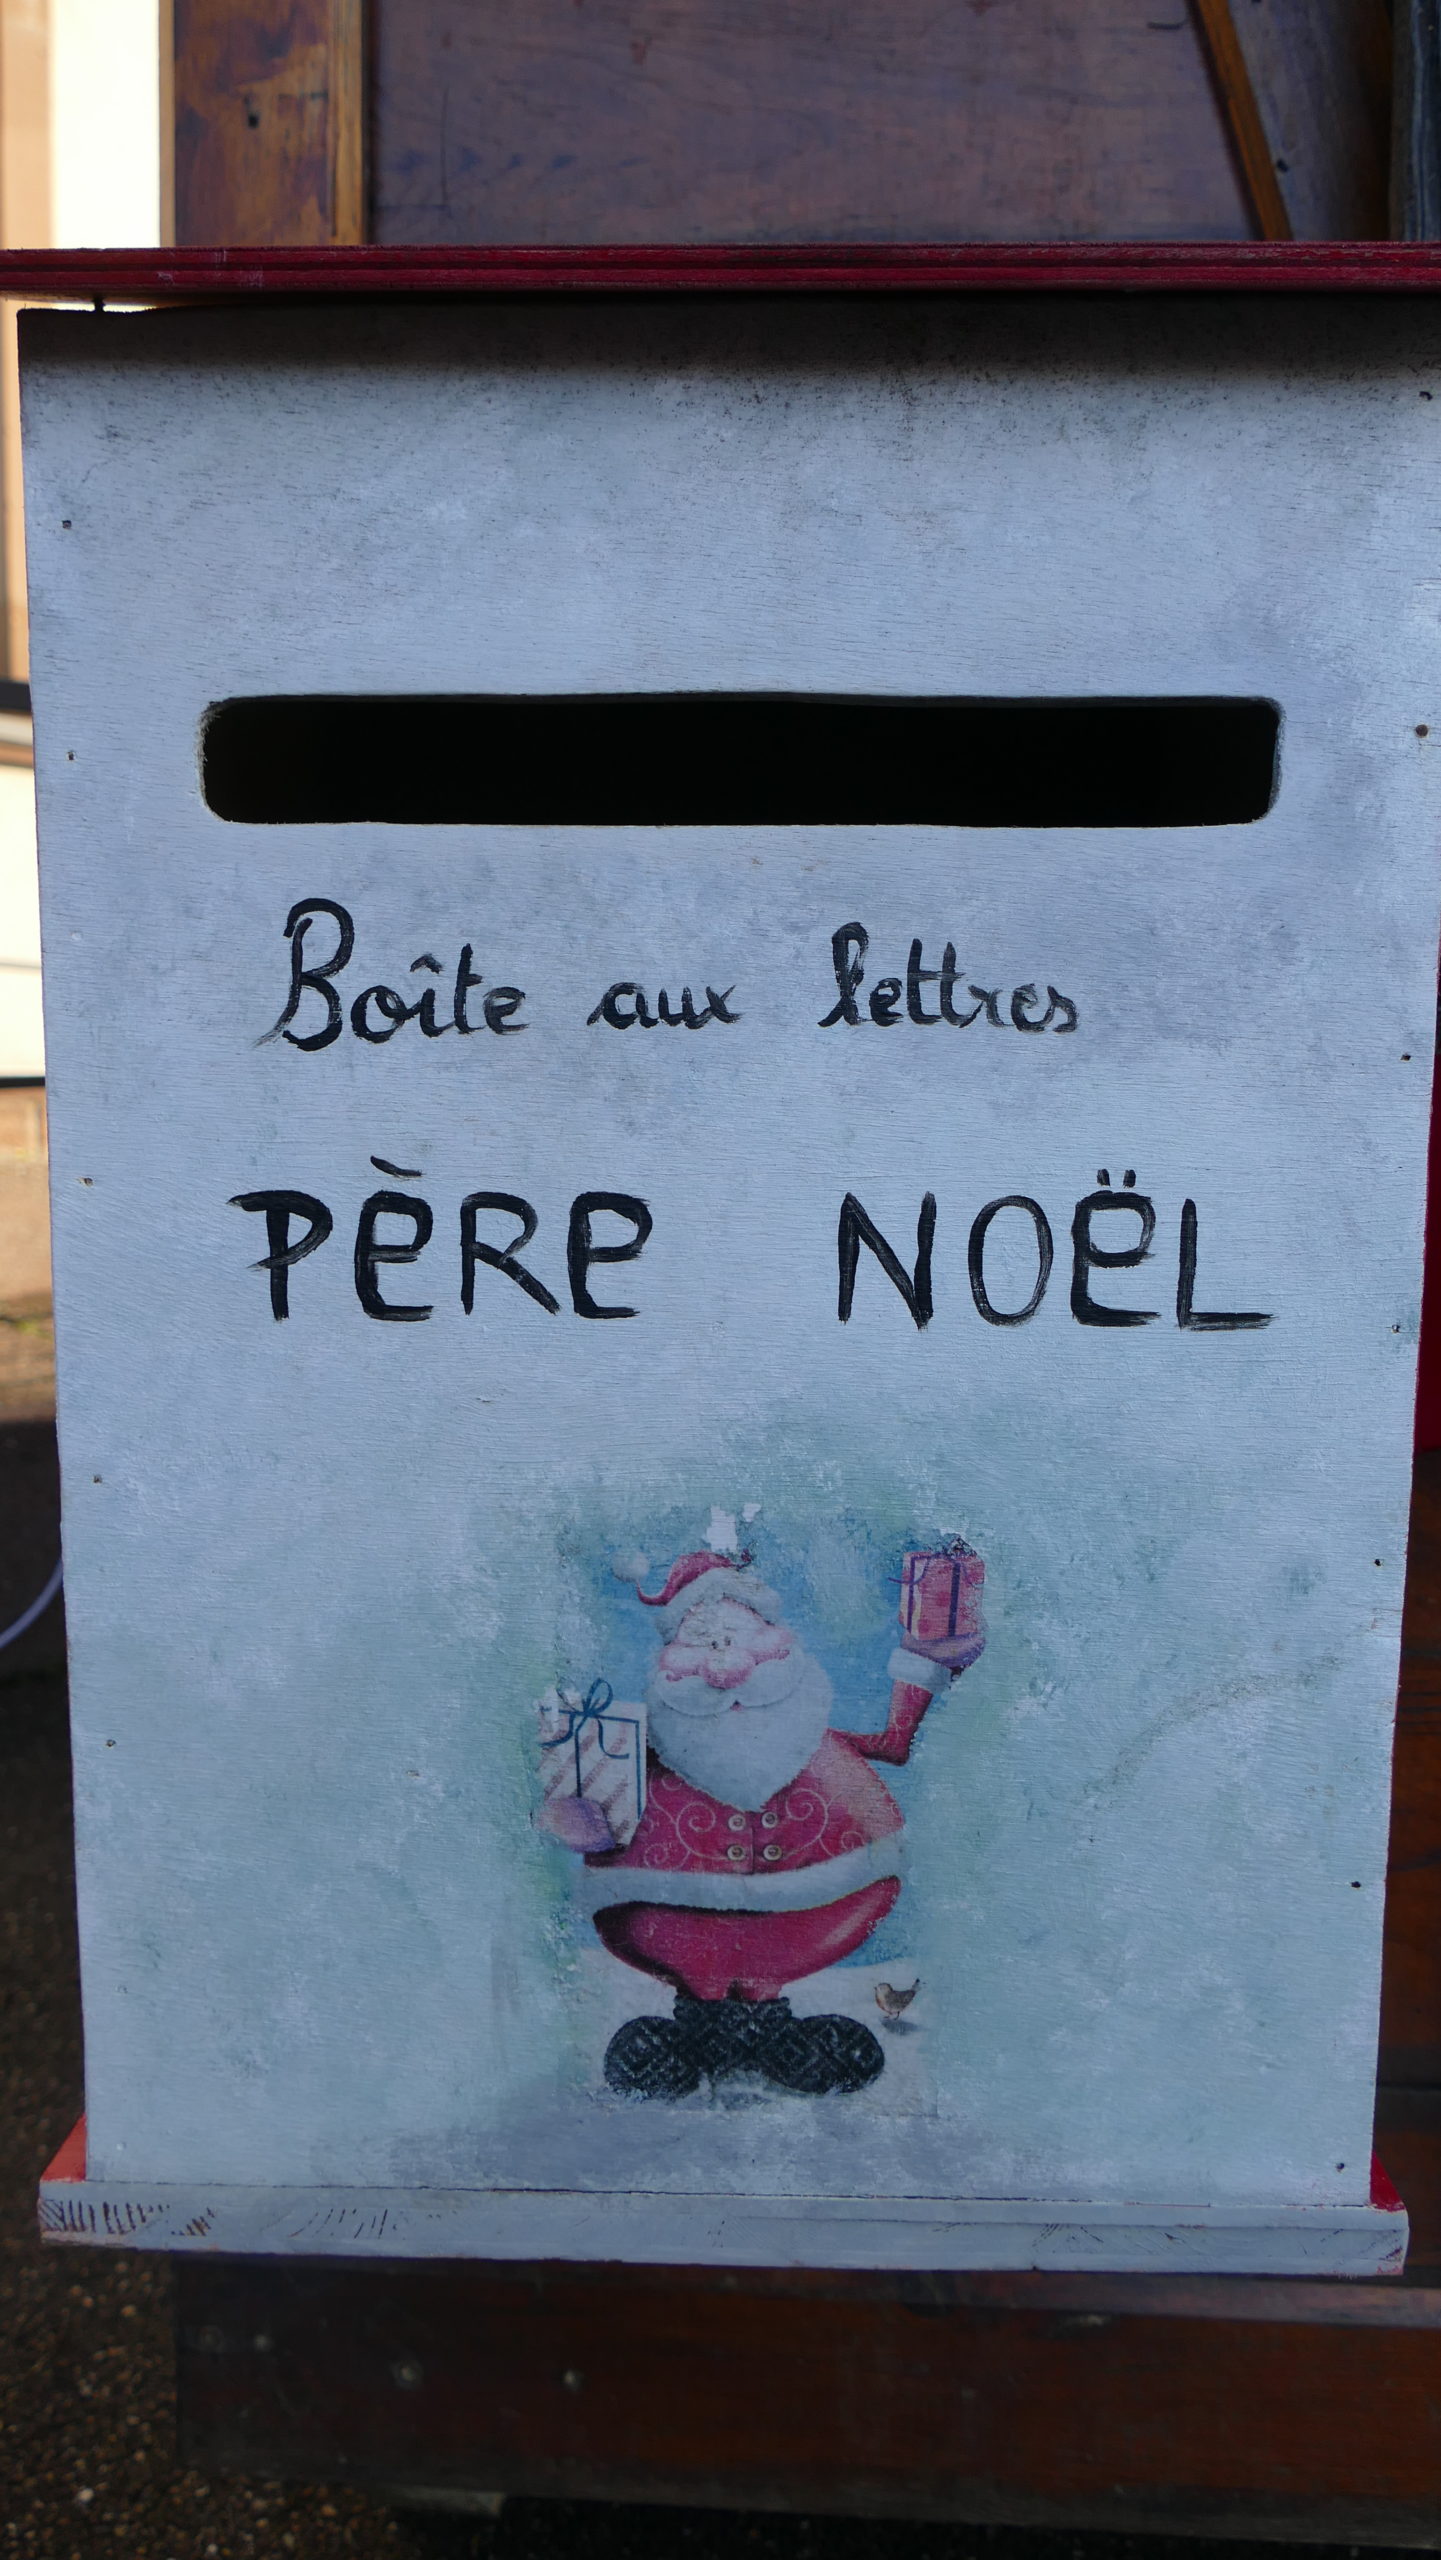 Boîte aux lettres
PÈRE NOËL